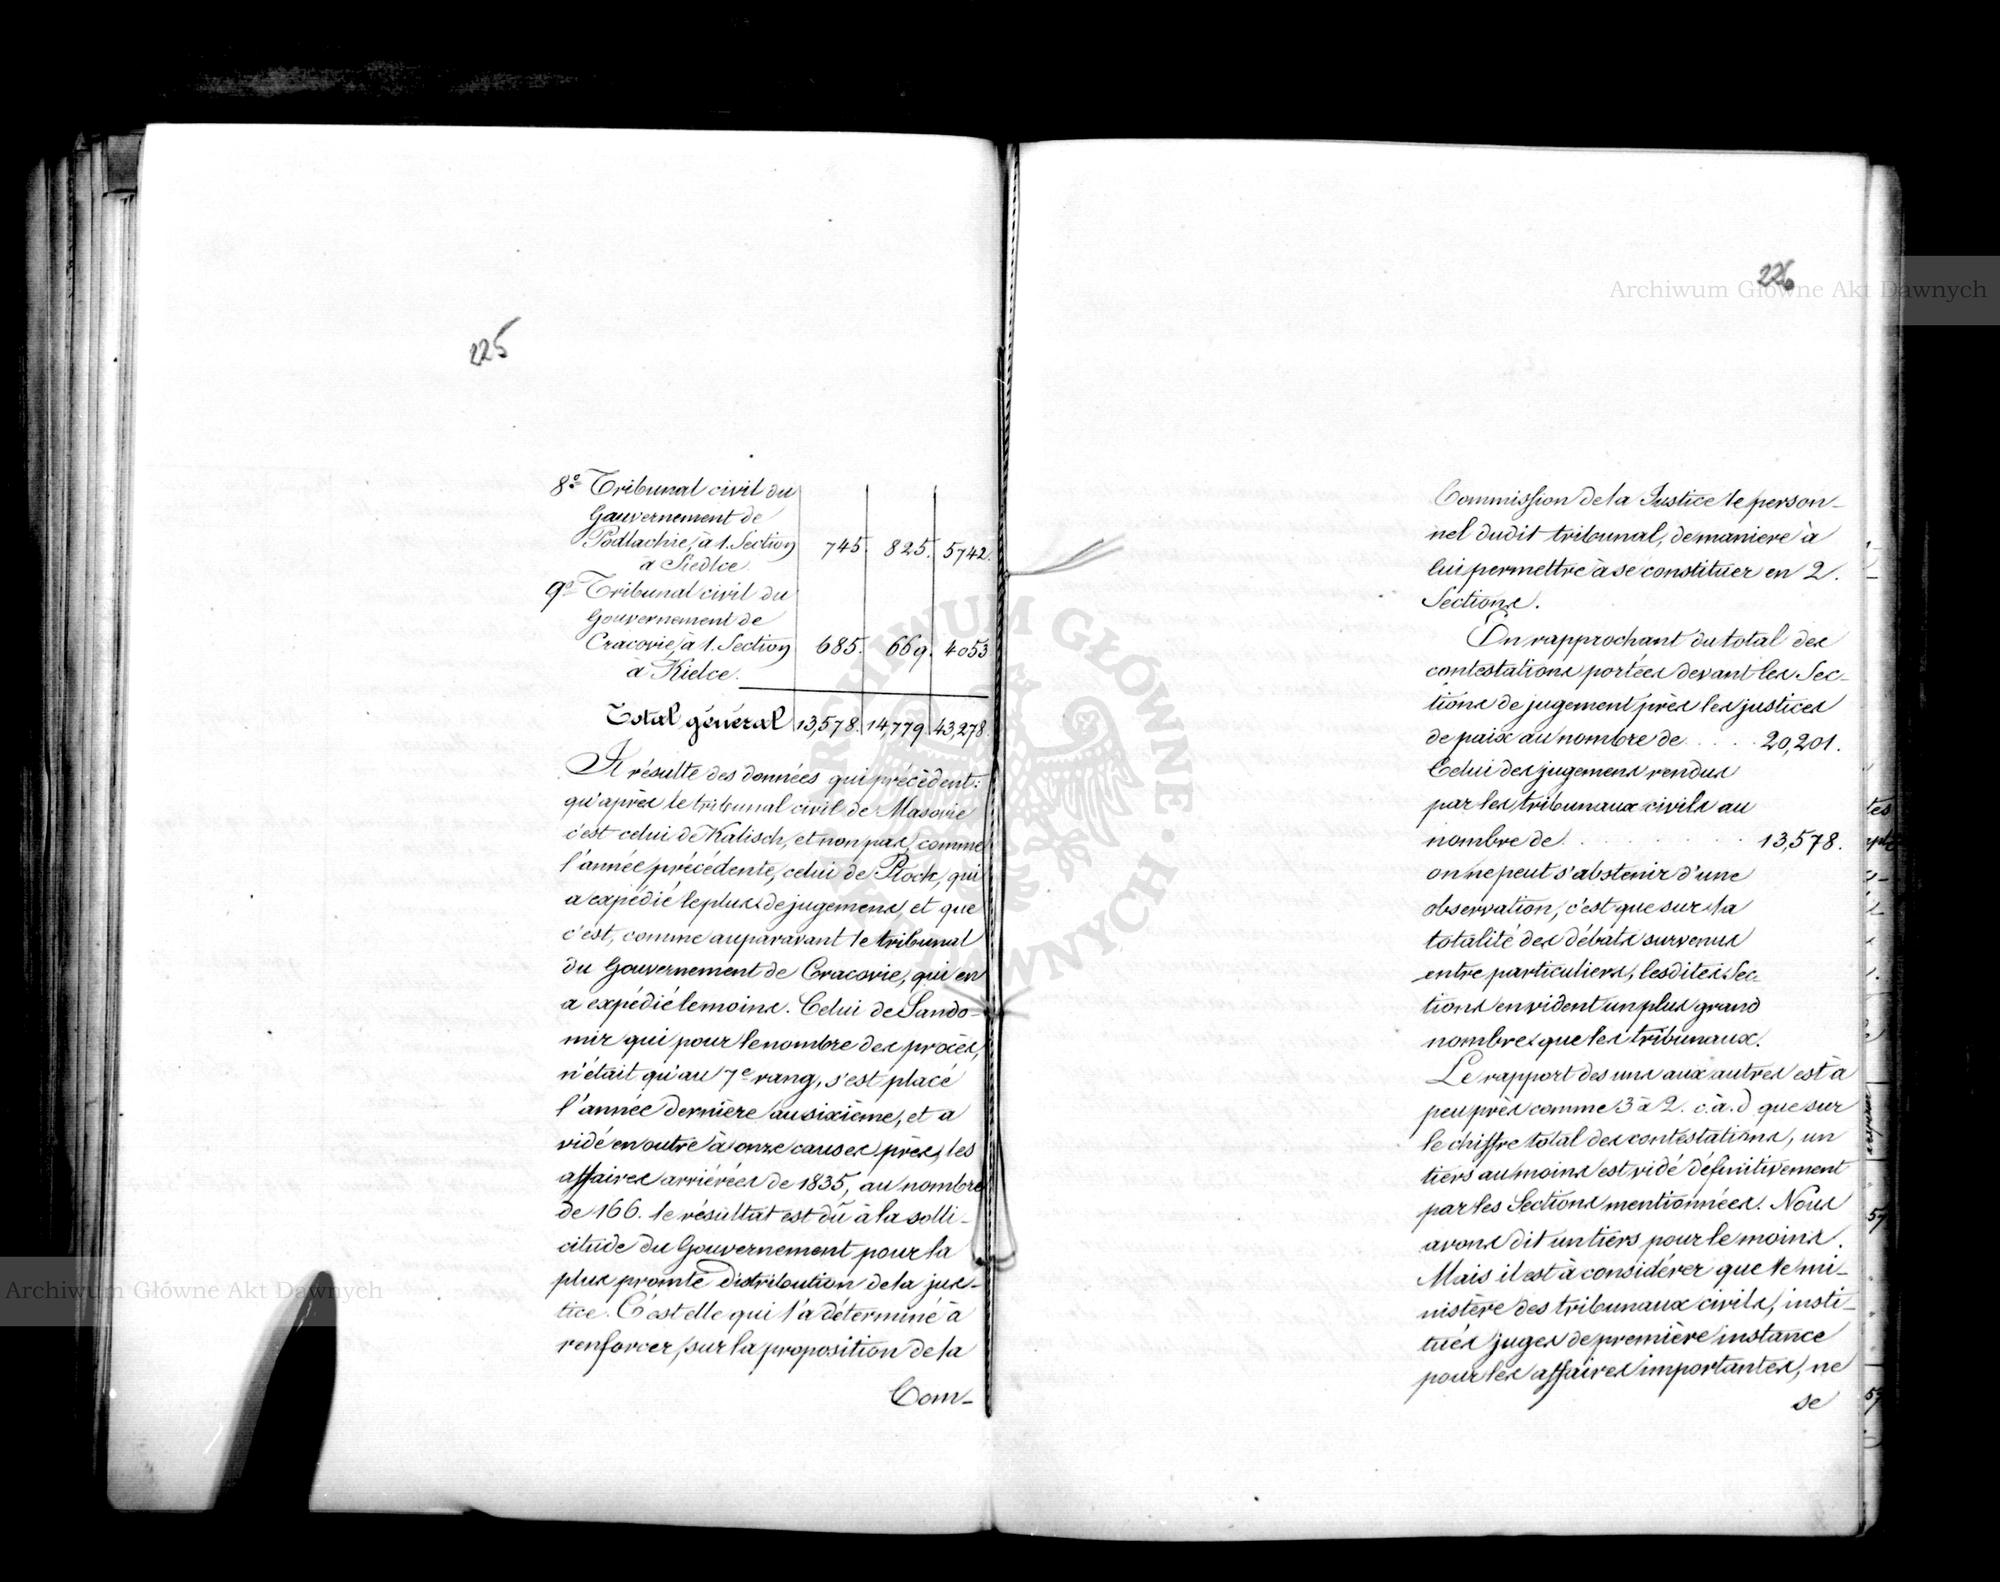 225
8º Tribunal civil du
Gouvernement de
Podlachie, à 1. Section 745. 825. 5742.
à Siedlce.
9º Tribunal civil du
Gouvernement de
Cracovie, à 1. Section 685. 669. 4053
à Kielce.
Total général 13,578. 14,779 43,278.
Il résulte des données qui précèdent:
qu'après le tribunal civil de Masovie
c'est celui de Kalisch, et non pas, comme
l'année précédente, celui de Plock, qui
a expédié le plus de jugemens, et que
c'est, comme auparavant le tribunal
du Gouvernement de Cracovie, qui en
a expédié le moins. Celui de Sando-
mir qui pour le nombre des procès,
n'était qu'au 7e rang, s'est placé
l'année dernière au sixième, et a
vidé en outre à onze causes près, les
affaires arriérées de 1835, au nombre
de 166. le résultat est dû à la solli-
citude du Gouvernement pour la
plus promte distribution de la jus-
tice. C'est elle qui l'a déterminé à
renforcer, sur la proposition de la
Com-
226
Commission de la Justice le person-
nel dudit tribunal, de maniere à
lui permettre à se constituer en 2.
Sections.
En rapprochant du total des
contestations portées devant les Sec-
tions de jugement près les justices
de paix au nombre de . . . . 20,201.
Celui des jugemens rendus
par les tribunaux civils au
nombre de . . . . . . . . 13,578.
on ne peut s'abstenir d'une
observation, c'est que sur la
totalité des débats survenus
entre particuliers, lesdites Sec-
tions en vident un plus grand
nombre que les tribunaux.
Le rapport des uns aux autres est à
peu près comme 3 à 2. c.à.d que sur
le chiffre total des contestations, un
tiers au moins est vidé définitivement
par les Sections mentionnées. Nous
avons dit un tiers pour le moins.
Mais il est à considérer que le mi-
nistère des tribunaux civils, insti-
tués juges de première instance
pour les affaires importantes, ne
se
Archiwum Główne Akt Dawnych
Archiwum Główne Akt Dawnych
ARCHIWUM GŁÓWNE AKT DAWNYCH